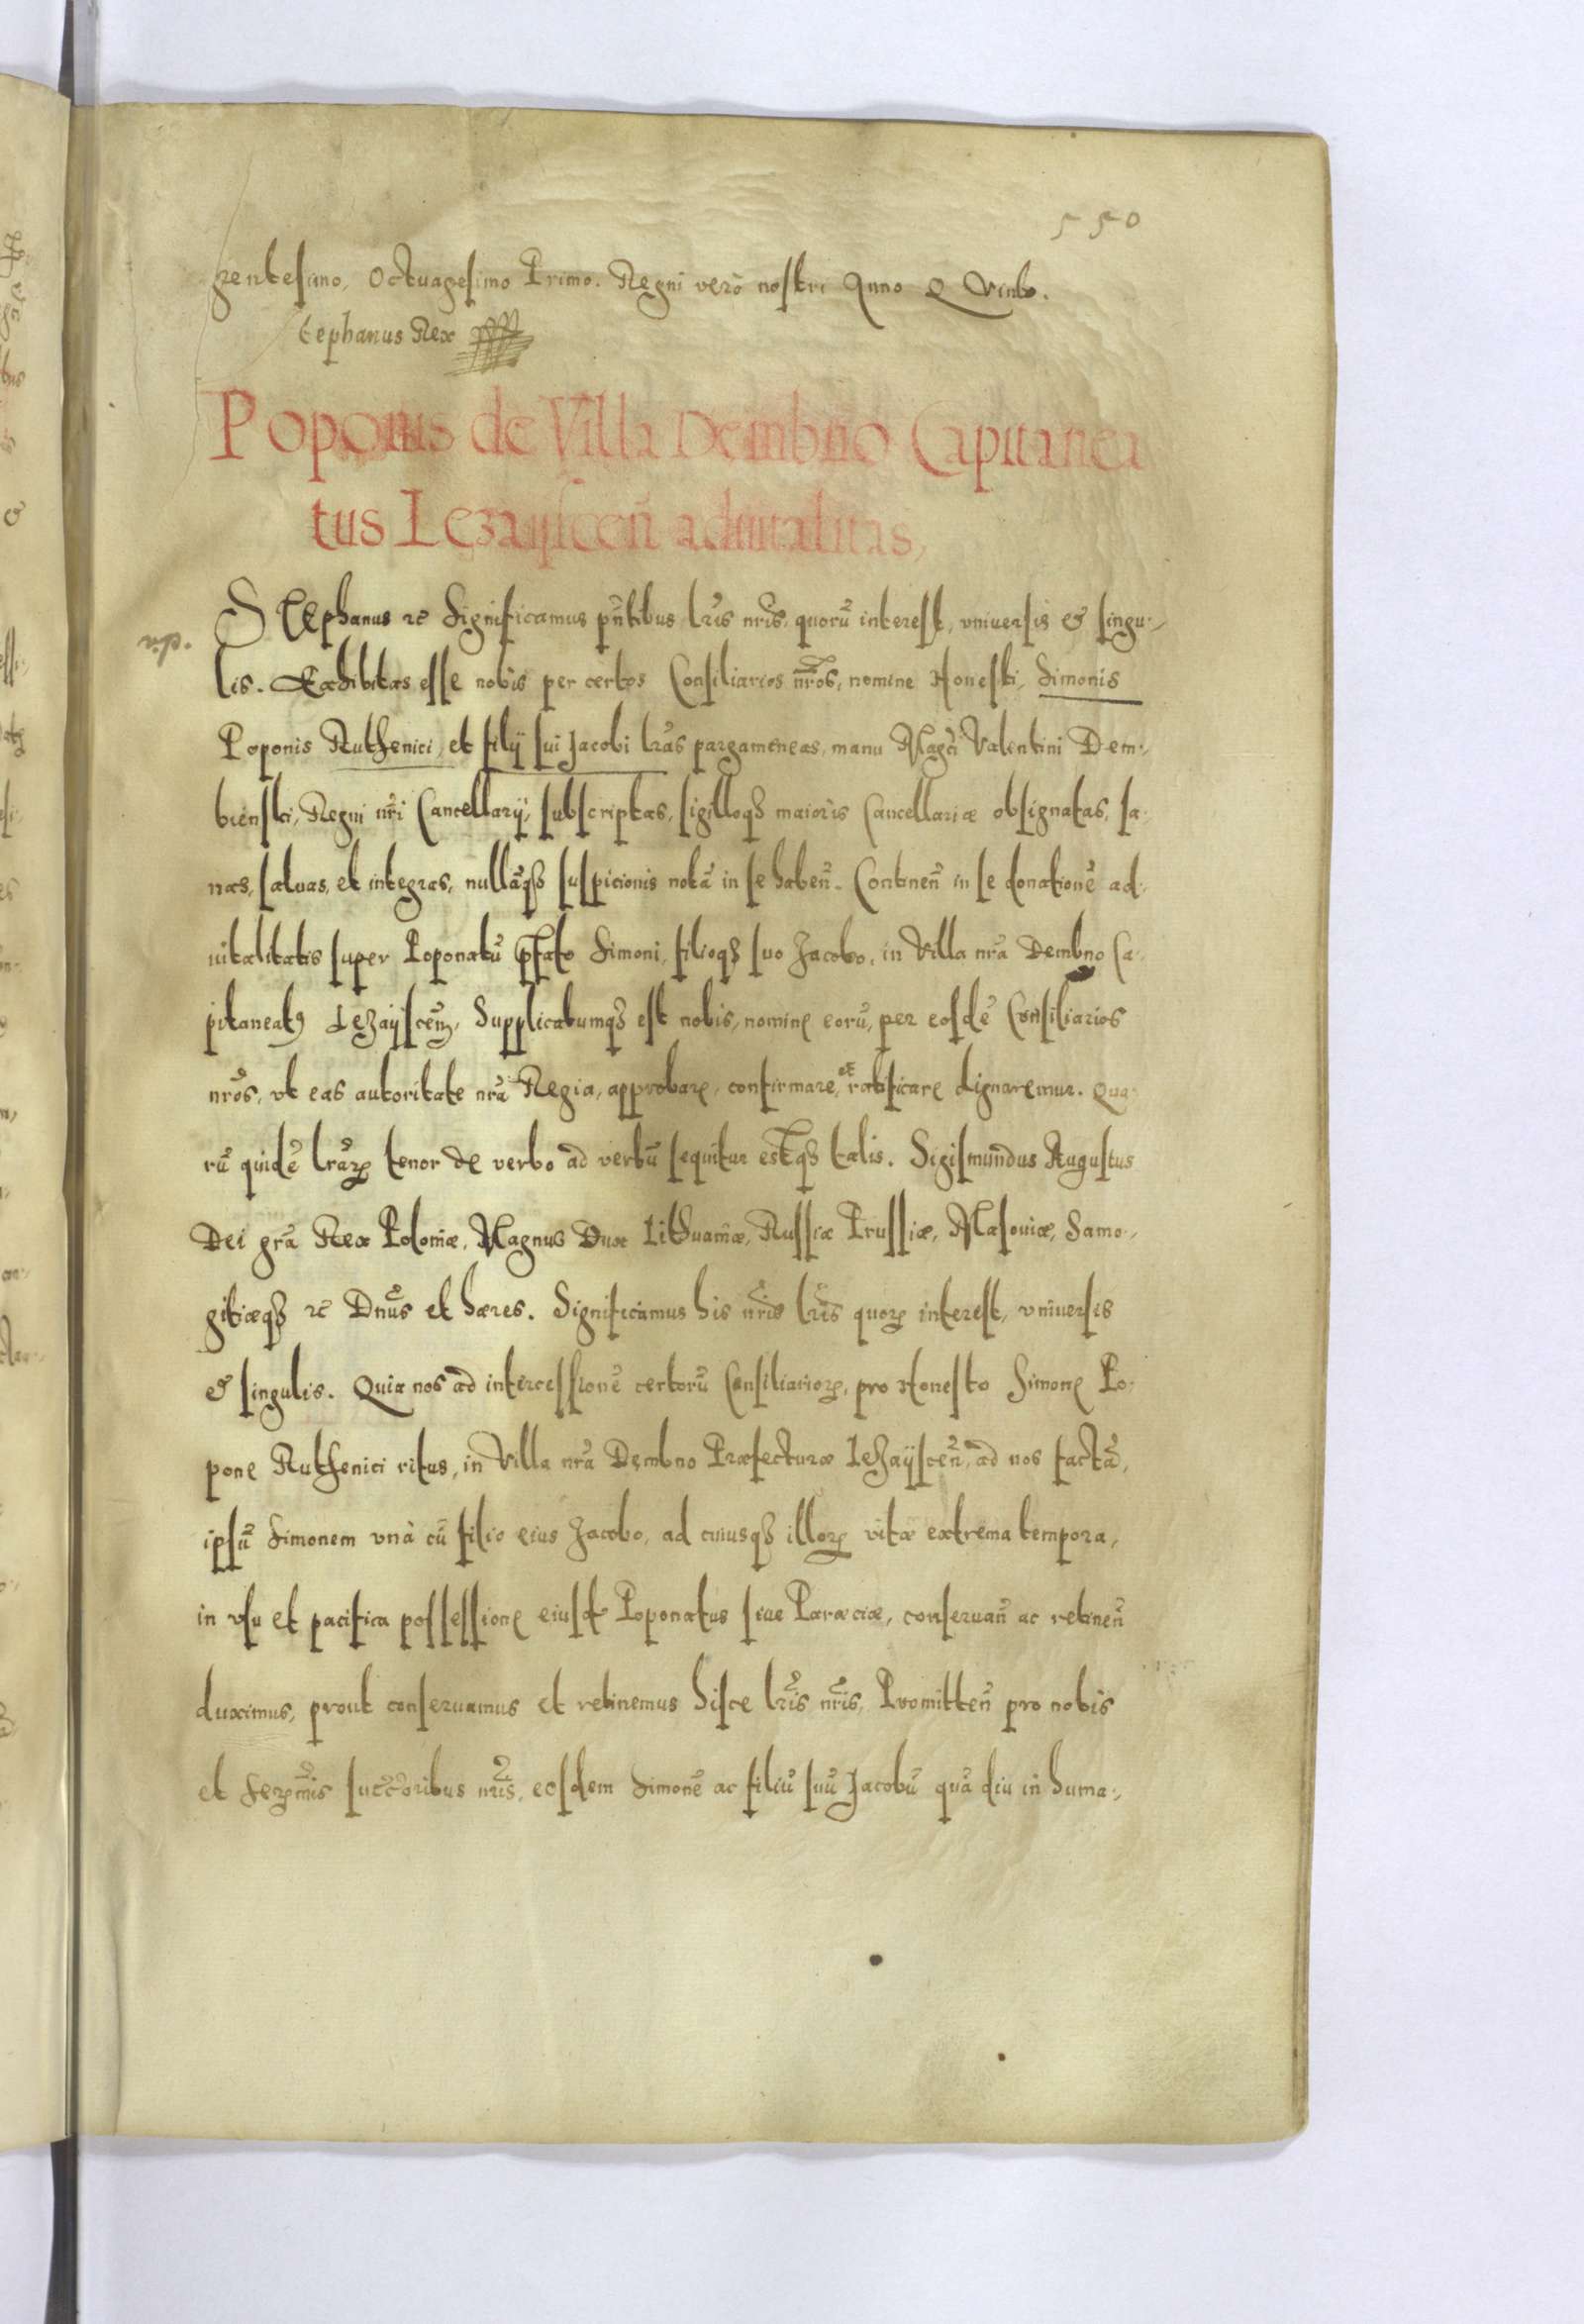 550
gentesimo, Octuagesimo Primo. Regni verò nostri Anno Quinto.
Stephanus Rex
Poponis de Villa Dembno Capitanea
tus Lezaijscen̄ aduitalitas,
Stephanus rc̄ Significamus pn̄tibus lr̄is nr̄is, quorū interest, vniuersis & singu-
lis. Exhibitas esse nobis per certos Consiliarios nr̄os, nomine Honesti, Simonis
Poponis Ruthenici, et filij sui Jacobi lr̄as pargameneas, manu Maḡci Valentini Dem-
bienski, Regni nr̄i Cancellarij, subscriptas, sigilloqꝫ maioris Cancellariæ obsignatas, sa-
nas, saluas, et integras, nullāqꝫ suspicionis notā in se haben̄. Continen̄ in se donationē ad-
uitalitatis super Poponatū p̄fato Simoni, filioqꝫ suo Jacobo, in Villa nr̄a Dembno Ca-
pitaneatꝰ Lezaijscen̄, Supplicatumqꝫ est nobis, nomine eorū, per eosdē Consiliarios
nr̄os, vt eas autoritate nr̄a Regia, approbare, confirmare, et ratificare dignaremur. Qua-
rū quidē lr̄arꝝ tenor de verbo ad verbū sequitur estqꝫ talis. Sigismundus Augustus
Dei gr̄a Rex Poloniæ, Magnus Dux Lithuaniæ, Russiæ Prussiæ, Masouiæ, Samo-
gitiæqꝫ rc̄ Dn̄us et hæres. Significamus his nr̄is lr̄is quorꝝ interest, vniuersis
& singulis. Quia nos ad intercessionē certorū Consiliariorꝝ, pro Honesto Simone Po-
pone Ruthenici ritus, in Villa nr̄a Dembno Præfecturæ Lezaijscen̄, ad nos factā,
ipsū Simonem vnà cū filio eius Jacobo, ad cuiusqꝫ illorꝝ vitæ extrema tempora,
in vsu et pacifica possessione eiusd̄ Poponatus siue Paræciæ, conseruan̄ ac retinen̄
duximus, prout conseruamus et retinemus hisce lr̄is nr̄is, Promitten̄ pro nobis
et Ser̄mis succ̄oribus nr̄is, eosdem Simonē ac filiū suū Jacobū quā diu in huma-